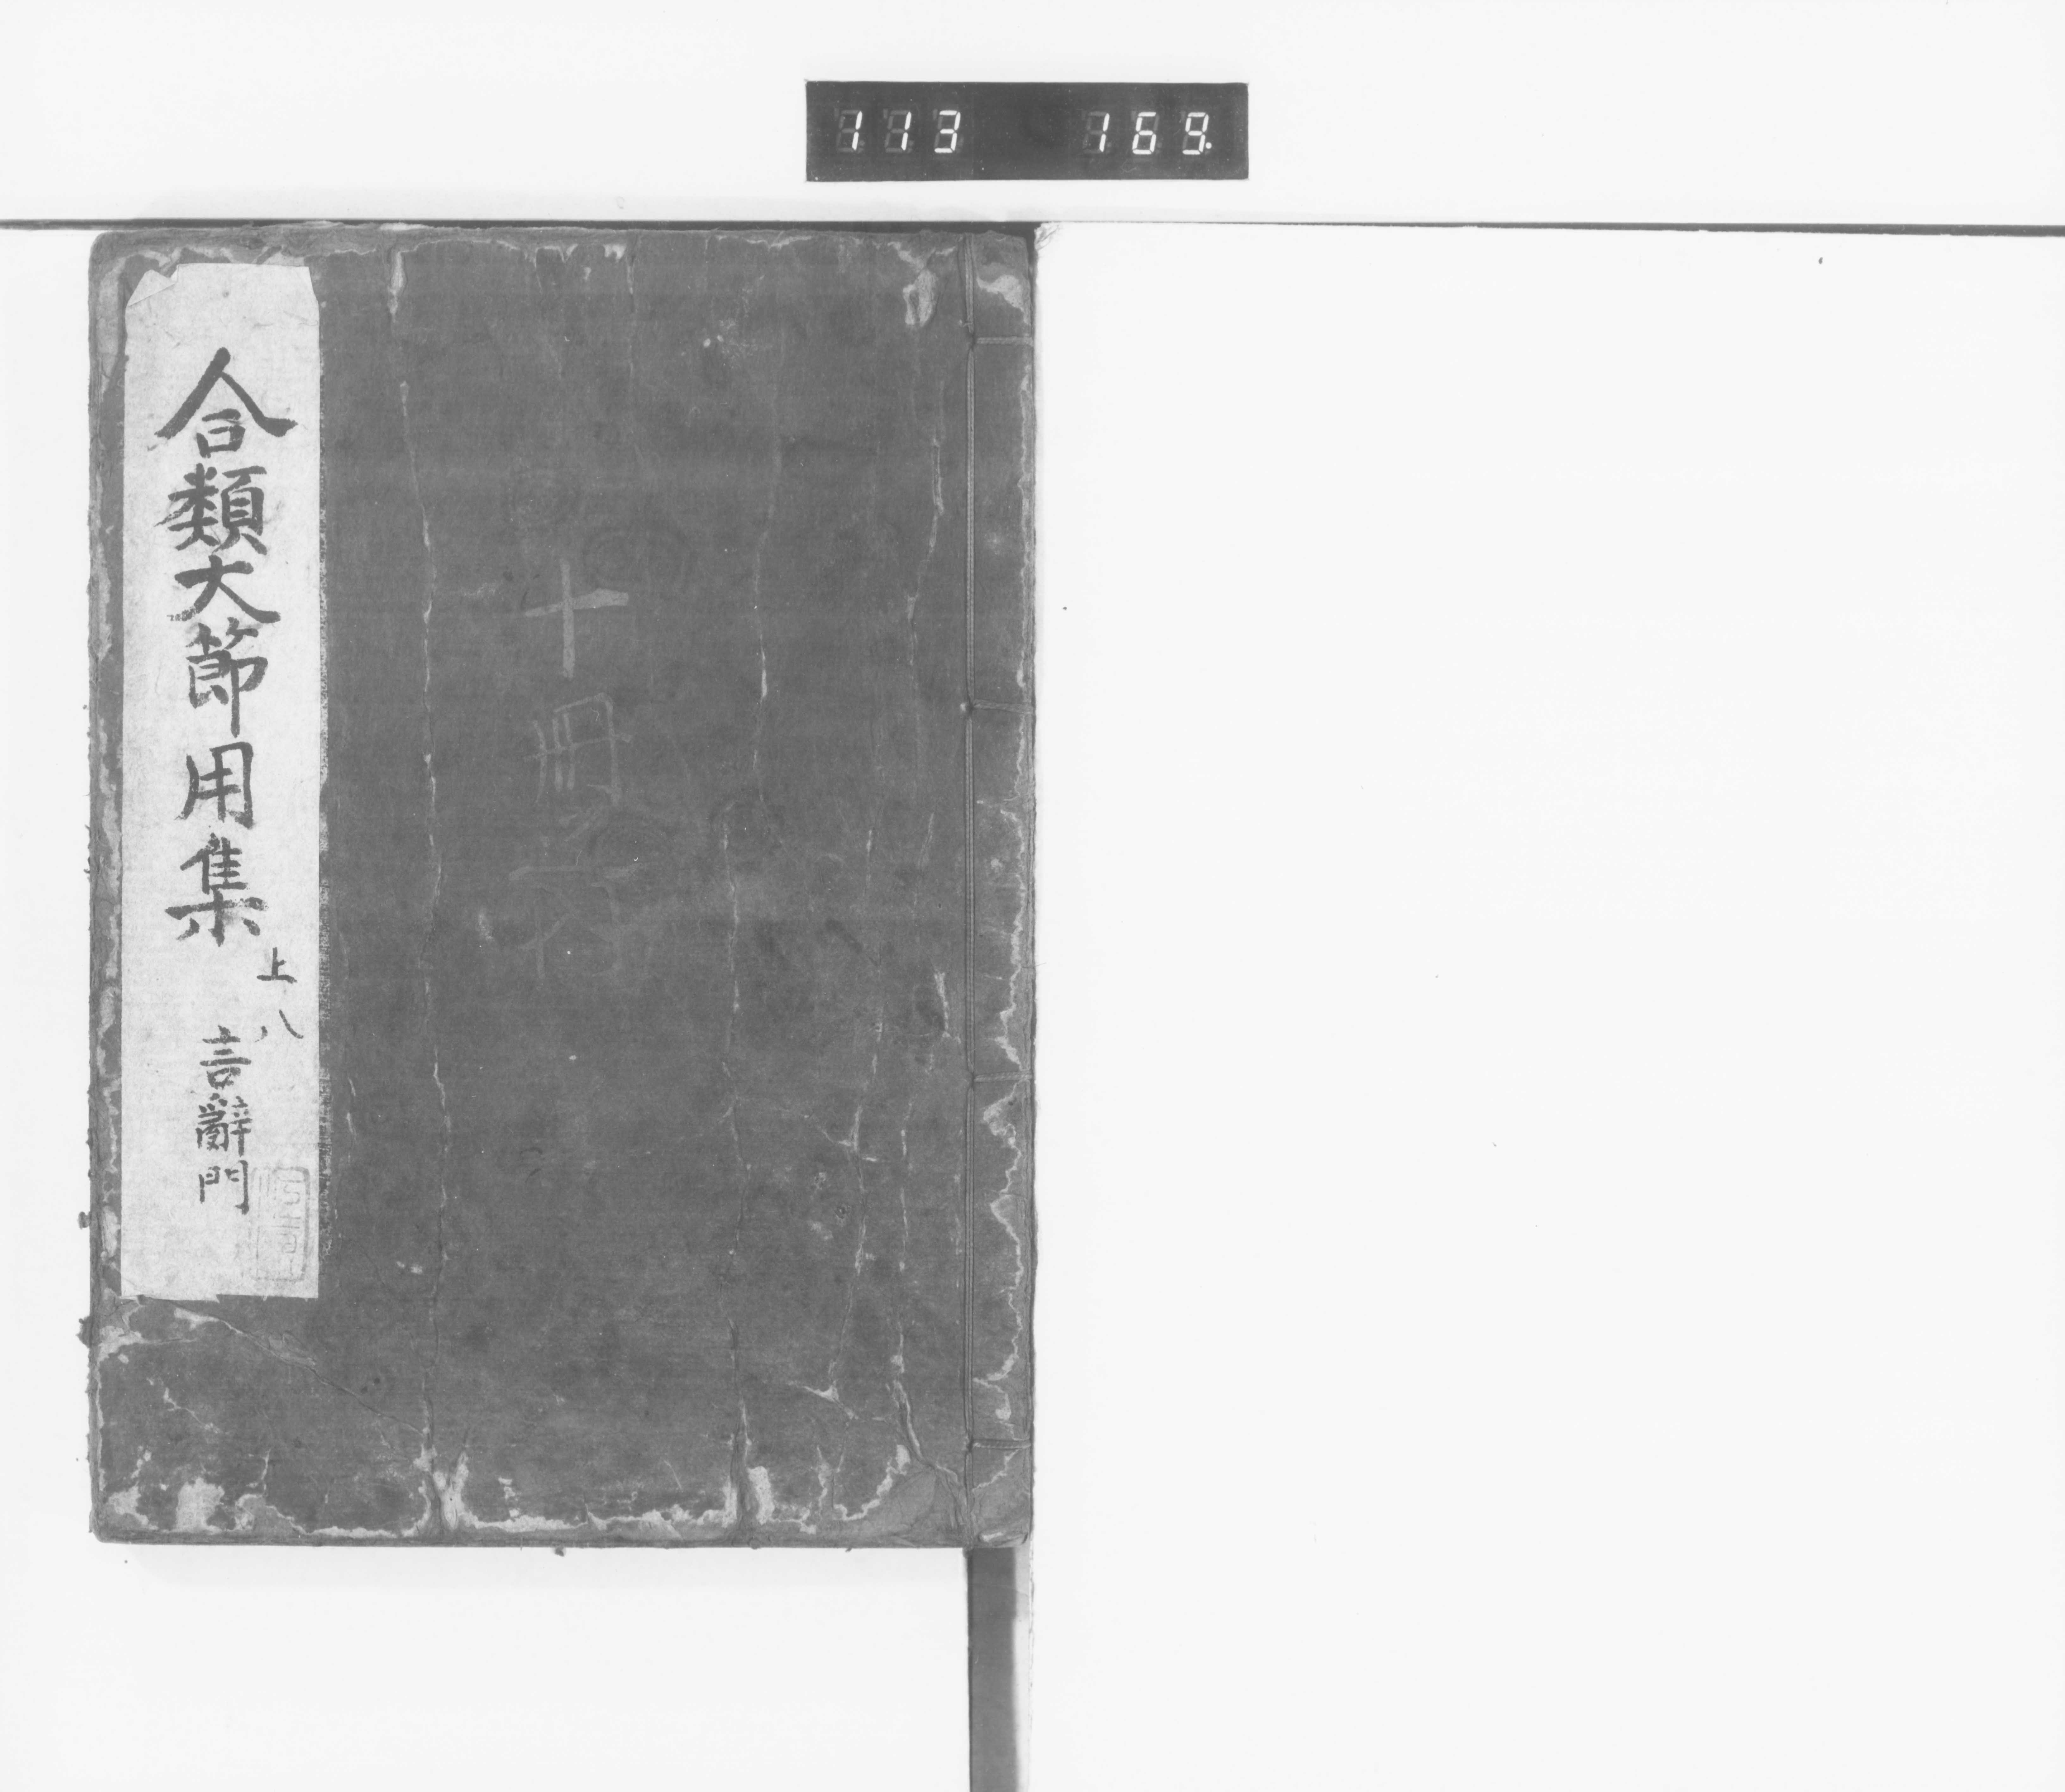 113 169.
十冊
合類大節用集
上八
言辭門